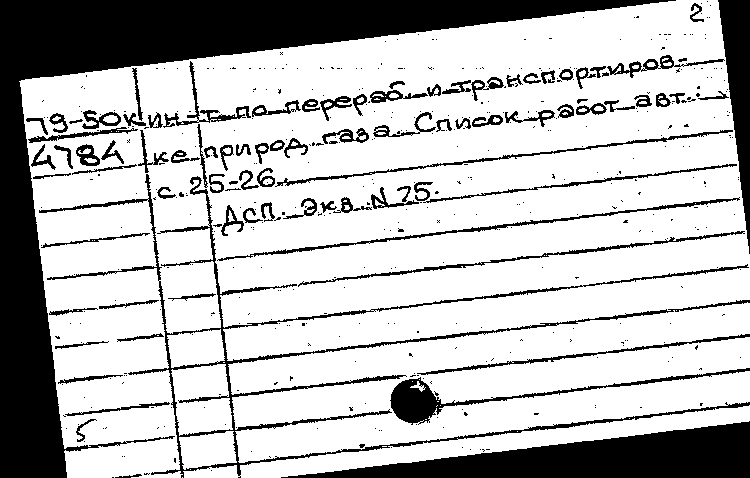 2
79-50к ин-т по перераб. и транспортиров-
4784 ке природ. газа. Список работ авт.:
с.25-26.
Дсп. Экз. N 25.
5